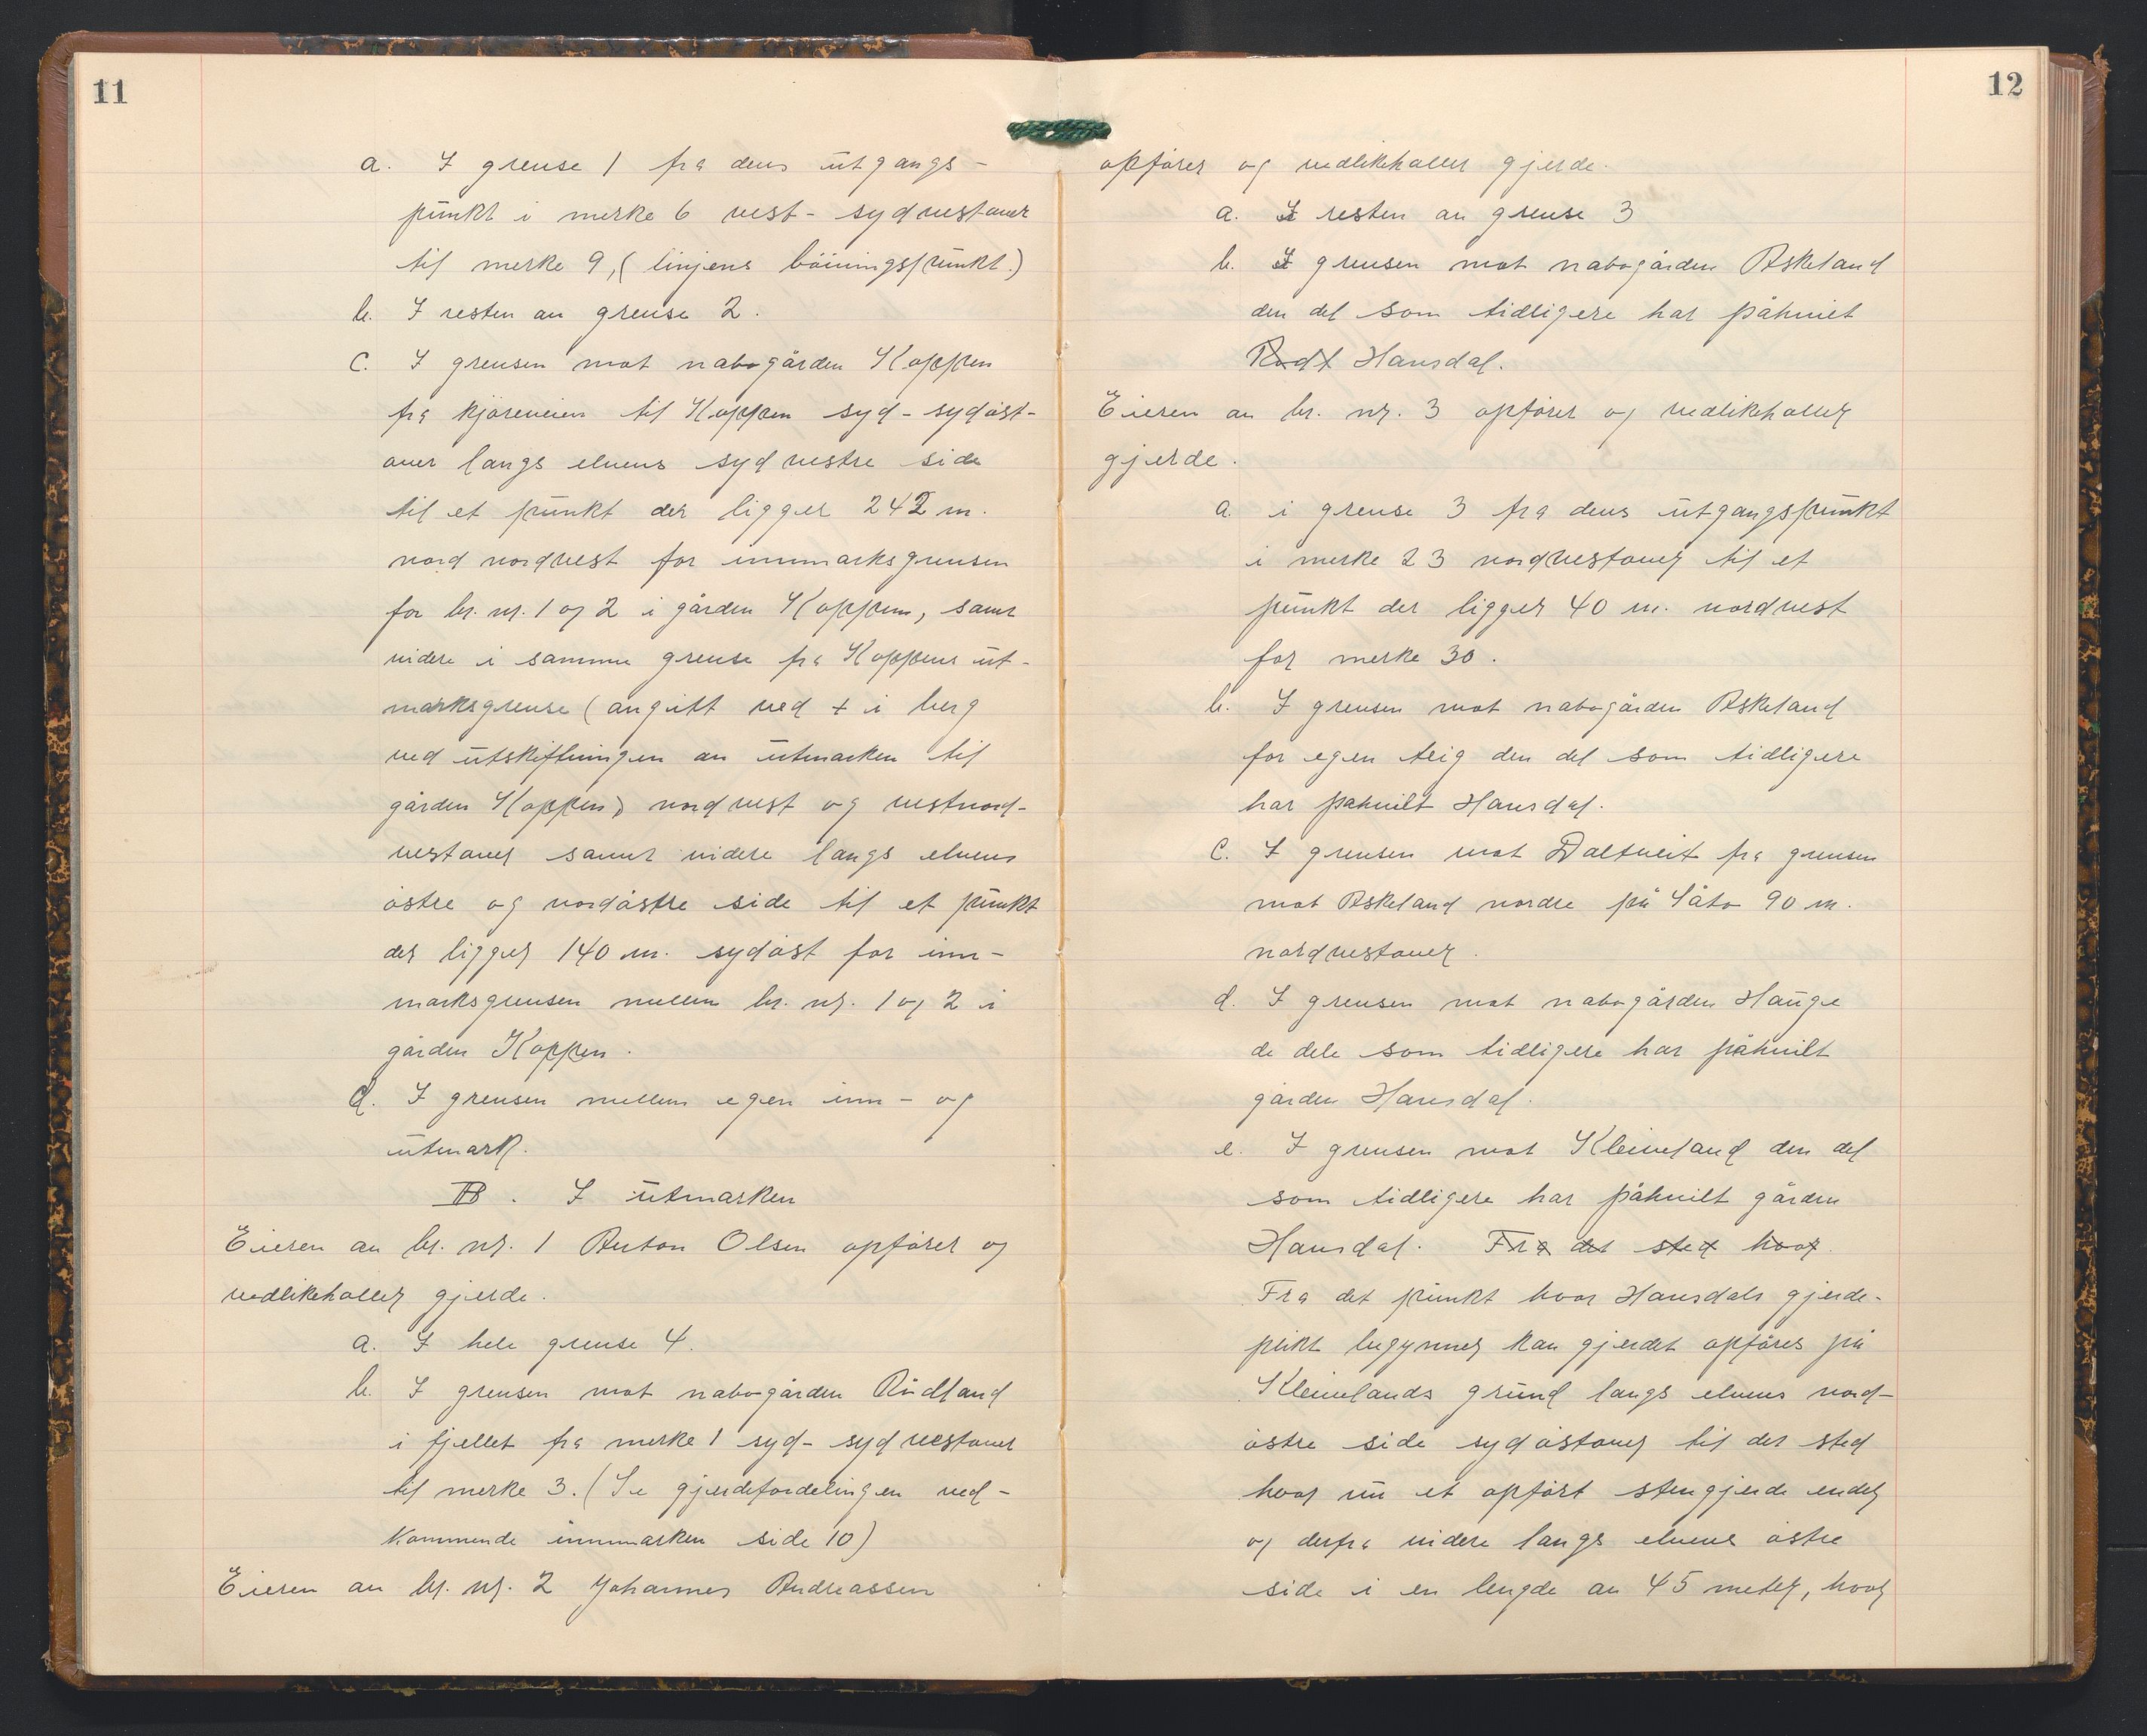 11
a. I grense 1 fra dens utgangs-
punkt i merke 6 vest- sydvestover
til merke 9, (linjens böiningspunkt.)
b. I resten av grense 2.
c. I grensen mot nabogården Koppen
fra kjöreveien til Koppen syd- sydöst-
over langs elvens sydvestre side
til et punkt der ligger 242 m.
nord nordvest for innmarksgrensen
for br. nr. 1 og 2 i gården Koppen, samt
videre i samme grense fra Koppens ut-
marksgrense (angitt ved + i berg
ved utskiftningen av utmarken til
gården Koppen) nordvest og vestnord-
vestover samt videre langs elvens
östre og nordöstre side til et punkt
der ligger 140 m. sydöst for inn-
marksgrensen mellem br. nr. 1 og 2 i
gården Koppen.
d. I grensen mellem egen inn- og
utmark.
B. I utmarken
Eieren av br. nr. 1 Anton Olsen opförer og
vedlikeholler gjerde.
a. I hele grense 4.
b. I grensen mot nabogården Rödland
i fjellet fra merke 1 syd- sydvestover
til merke 3. (Se gjerdefordelingen ved-
kommende innmarken side 10)
Eieren av br. nr. 2 Johannes Andreassen
12
opförer og vedlikeholler gjerde.
a. I resten av grense 3
b. I grensen mot nabogården Askeland
den del som tidligere har påhvilt
Hansdal.
Eieren av br. nr. 3 opförer og vedlikeholler
gjerde.
a. i grense 3 fra dens utgangspunkt
i merke 23 nordvestover til et
punkt der ligger 40 m. nordvest
for merke 30.
b. I grensen mot nabogården Askeland
for egen teig den del som tidligere
har påhvilt Hansdal.
c. I grensen mot Daltveit fra grensen
mot Askeland nordre på Såto 90 m.
nordvestover.
d. I grensen mot nabogården Hauge
de dele som tidligere har påhvilt
gården Hansdal.
e. I grensen mot Kleiveland den del
som tidligere har påhvilt gården
Hansdal. Fra det sted hvor
Fra det punkt hvor Hansdals gjerde-
plikt begynner kan gjerdet opföres på
Kleivelands grund langs elvens nord-
östre side sydöstover til det sted
hvor nu et opfört stengjerde ender
og derfra videre langs elvens östre
side i en lengde av 45 meter, hvor